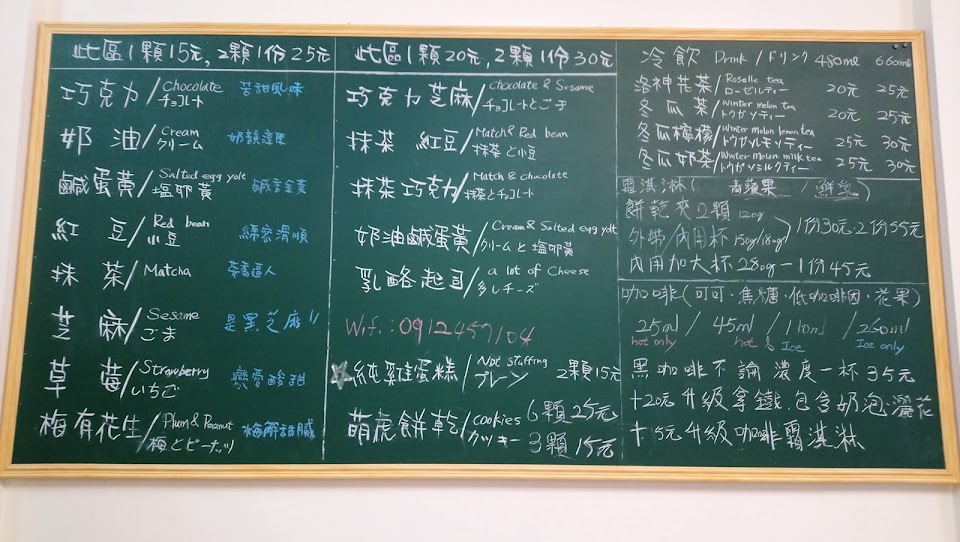 此區1顆15元, 2顆1份25元
巧克力/Chocolate チョコレート 苦甜風味
奶油/Cream クリーム 奶韻這裡
鹹蛋黃/Salted egg yolt 塩卵黄 鹹香金黃
紅豆/Red bean 小豆 綿密滑順
抹茶/Matcha 茶香逼人
芝麻/Sesame ごま 是黑芝麻!!
草莓/Strawberry いちご 戀愛酸甜
梅有花生/Plum & Peanut 梅とピーナッツ 梅解甜膩
此區1顆20元, 2顆1份30元
巧克力芝麻/Chocolate & Sesame チョコレートとごま
抹茶紅豆/Match & Red bean 抹茶と小豆
抹茶巧克力/Match & chocolate 抹茶とチョコレート
奶油鹹蛋黃/Cream & Salted egg yolt クリームと塩卵黄
乳酪起司/a lot of Cheese 多しチーズ
Wifi:0912457104
☆純雞蛋糕/Not stuffing プレーン 2顆15元
萌虎餅乾/cookies クッキー 6顆25元 3顆15元
冷飲 Drink/ドリンク 480ml 660ml
洛神花茶/Roselle tea ローゼルティー 20元 25元
冬瓜茶/Winter melon tea トウガンティー 20元 25元
冬瓜檸檬/Winter melon lemon tea トウガンレモンティー 25元 30元
冬瓜奶茶/Winter Melon milk tea トウガンミルクティー 25元 30元
霜淇淋(青蘋果/鮮乳)
餅乾夾2顆120g
外帶/內用杯150g/180g 1份30元,2份55元
內用加大杯280g-1份45元
咖啡(可可.焦糖.低咖啡因.花果)
25ml/45ml/110ml/260ml
hot only hot & Ice Ice only
黑咖啡不論濃度一杯35元
+20元升級拿鐵,包含奶泡灑花
+5元升級咖啡霜淇淋